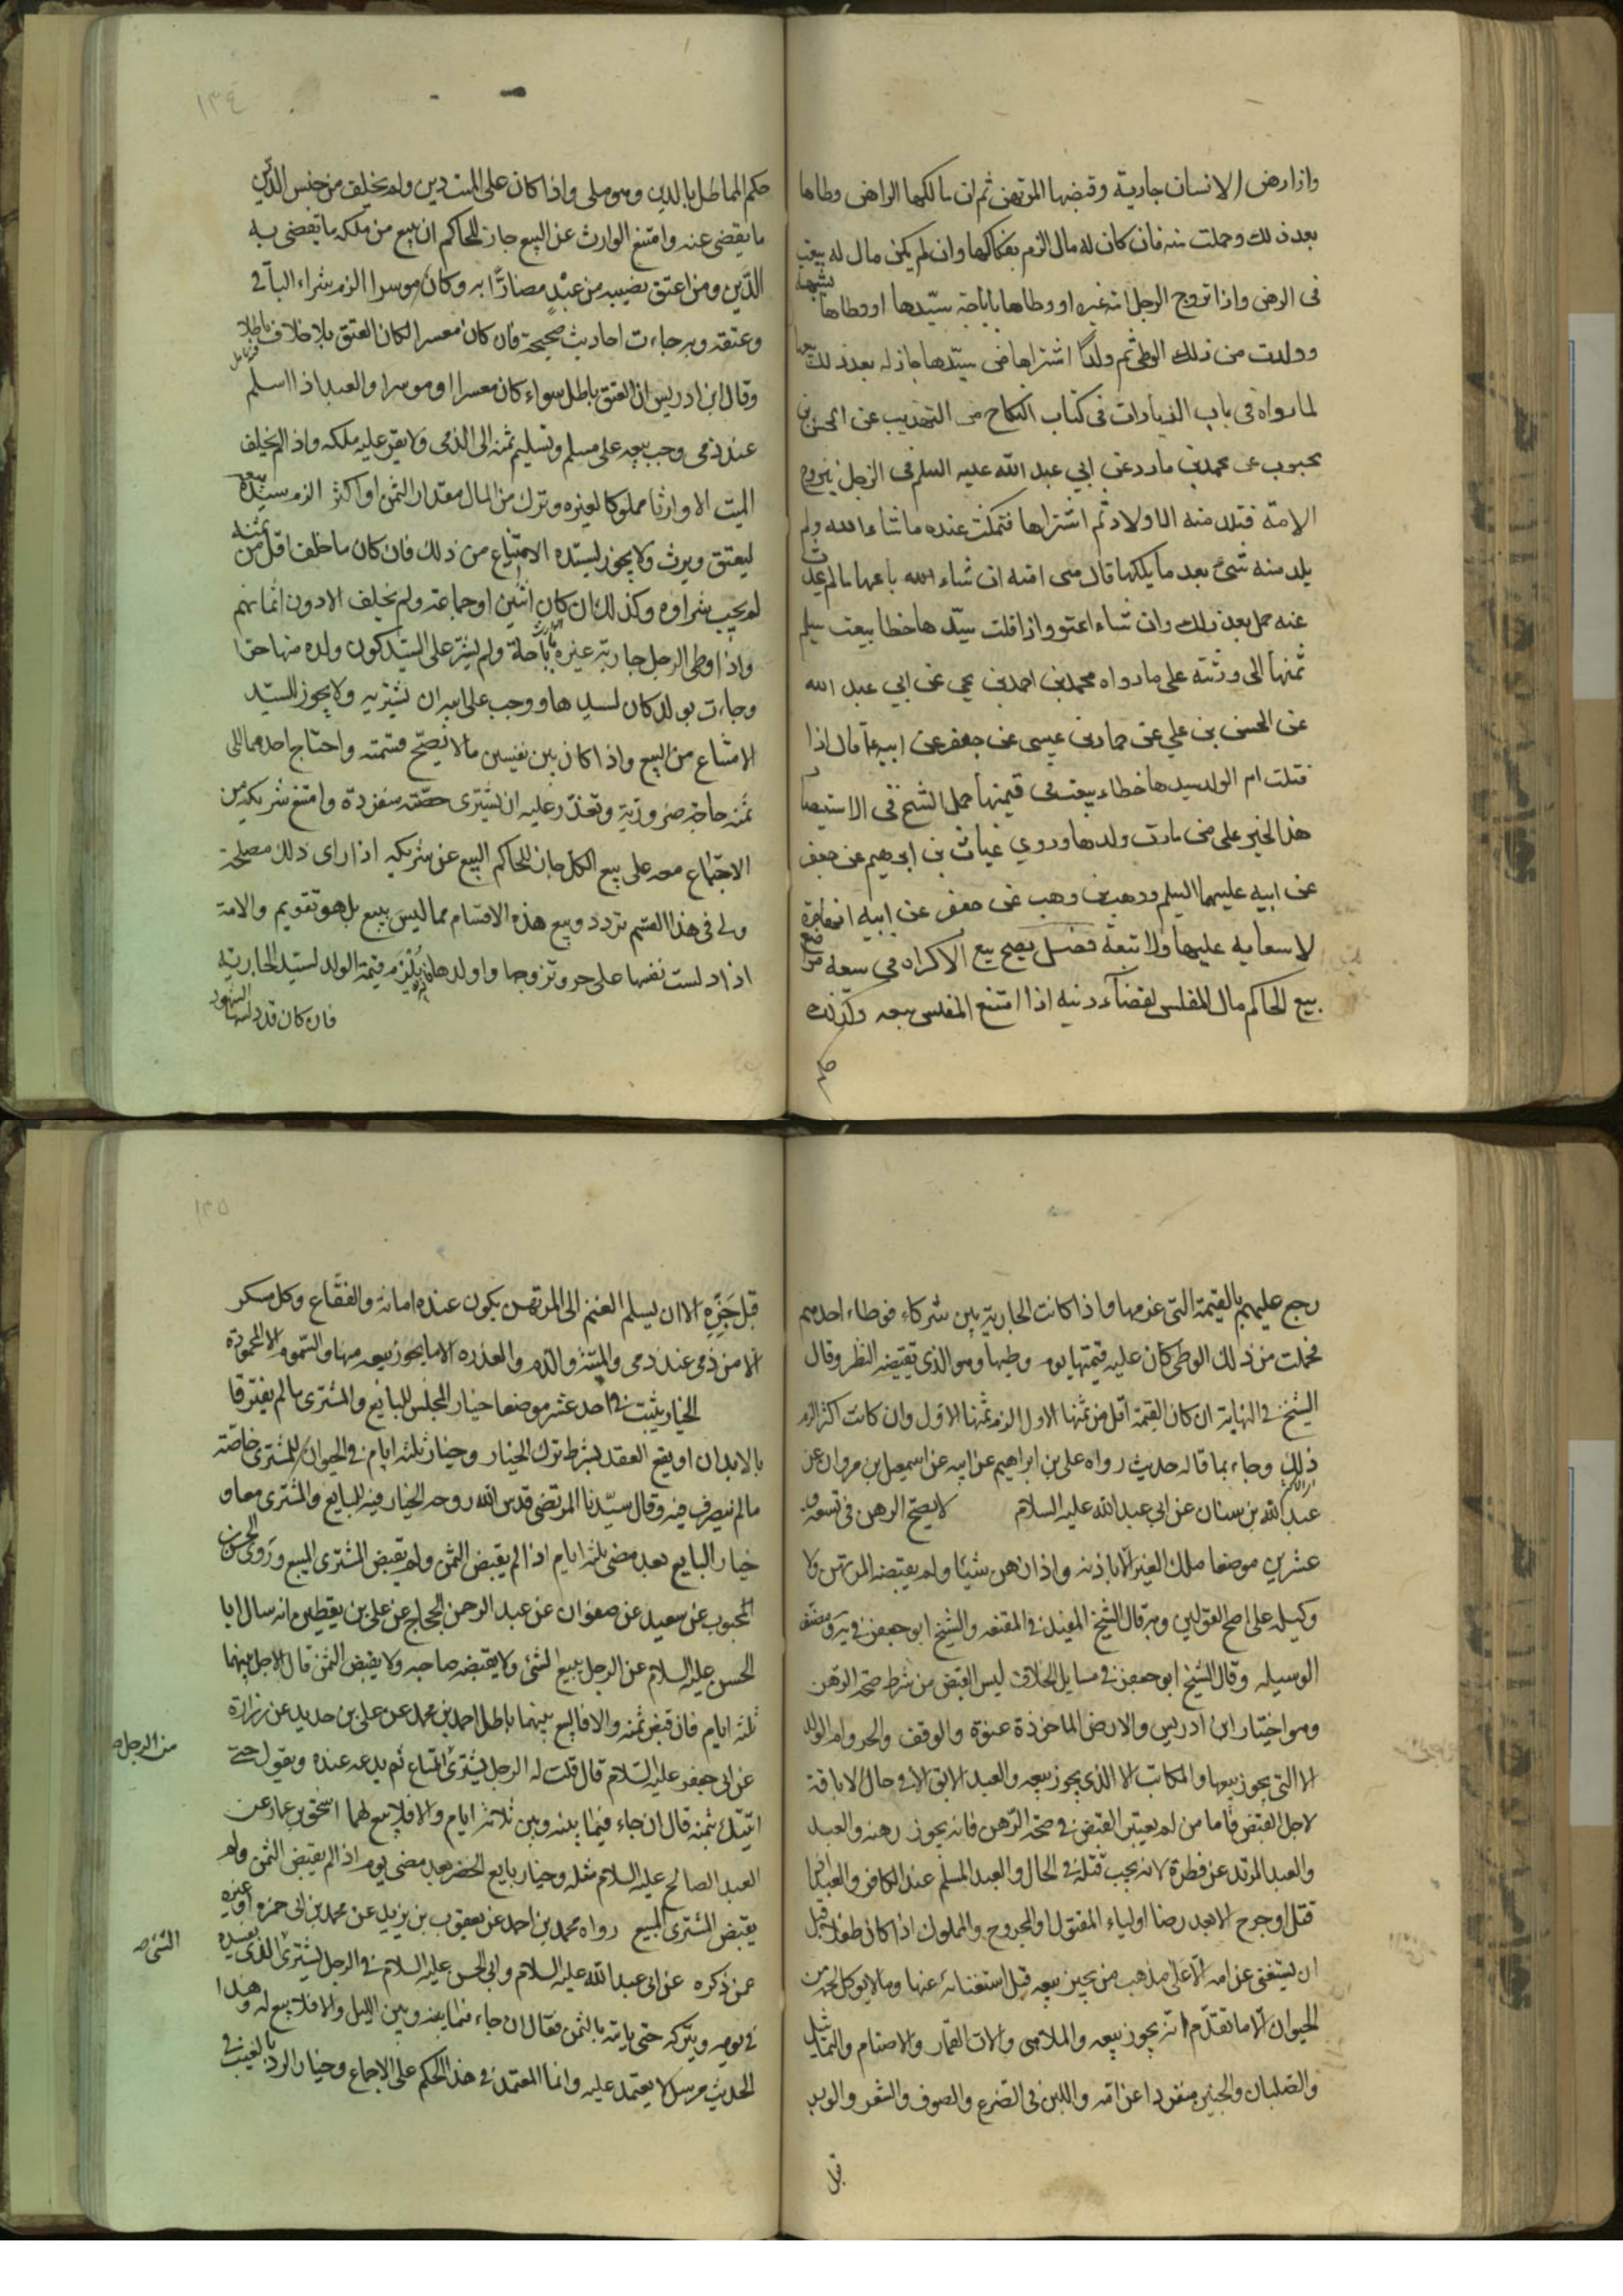 واذا رهن الانسان جارية وقبضها المرتهن ثم ان مالكها الراهن وطاها
بعد ذلك وحملت منه فان كان له مال الزم بفكاكها وان لم يكن مال له بيعت
فى الرهن واذا تزوج الرجل امة غيره او وطاها باباحة سيّدها او وطاها بشبهة
وولدت من ذلك الوطى ثم ولدًا اشتراها من سيّدها جاز له بعد ذلك بيعها
لما رواه فى باب الزيادات فى كتاب النكاح من التهذيب عن الحسن بن
محبوب عن محمد بن مارد عن ابي عبد الله عليه السلم فى الرجل يتزوج
الامة فتلد منه الاولاد ثم اشتراها فتمكث عنده ما شاء الله ولم
يلد منه شئ بعد ما يملكها قال هى امته ان شاء الله باعها ما لم يحدث
عنه حمل بعد ذلك وان شاء اعتق واذا قتلت سيّدها خطا بيعت سلم
ثمنها الى ورثته على ما رواه محمد بن احمد بن يحي عن ابي عبد الله
عن الحسن بن علي عن حماد بن عيسى عن جعفر عن ابيه ع قال اذا
قتلت ام الولد سيدها خطاء بيعت فى قيمتها حمل الشيخ فى الاستبصار
هذا الخبر على من مات ولدها وروي غياث بن ابرهيم عن جعفر
عن ابيه عليهما السلم ووهب بن وهب عن جعفر عن ابيه انها حرة
لا سعاية عليها ولا تبعة فصل يصح بيع الاكراه فى سعة مواضع
بيع الحاكم مال المفلس لقضاء دينه اذا امتنع المفلس بيعه وكذلك
حكم
١٣٤
حكم المماطل بالدين وهو ملى واذا كان على الميت دين ولم يخلف من جنس الدّين
ما يقضى عنه وامتنع الوارث عن البيع جاز للحاكم ان يبيع من ملكه ما يقضى به
الدّين ومن اعتق نصيبه من عبْدٍ مضارًّا به وكان موسرا الزم شراء الباقى
وعتقه وبه جاءت احاديث صحيحة فان كان معسرا لكان العتق بلا خلاف باطلا
فتامل
وقال ابن ادريس ان العتق باطل سواء كان معسرا او موسرا والعبد اذا اسلم
عند ذمى وجب بيعه على مسلم وتسليم ثمنه الى الذمى ولا يقر عليه ملكه واذا لم يخلف
الميت الا وارثا مملوكا لغيره وترك من المال مقدار الثمن او اكثر الزم سيّده بيعه
ليعتق ويرث ولا يجوز لسيّده الامتناع من ذلك فان كان ما خلف اقل من ثمنه
لم يجب شراوه وكذلك ان كان اثنين او جماعة ولم يخلف الا دون اثمانهم
واذا وطى الرجل جارية غيره باباحة ولم يشترط على السيّد كون ولده منها حرا
وجاءت بولد كان لسيدها ووجب على ابيه ان يشتريه ولا يجوز للسيّد
الامتناع من البيع واذا كان بين نفيسين ما لا يصحّ قسمته واحتاج احدهما الى
ثمنه حاجة ضرورية وتعذّر عليه ان يشترى حصّته منفردة وامتنع شريكه من
الاجتماع معه على بيع الكل جاز للحاكم البيع عن شريكه اذا راى ذلك مصلحة
ولى فى هذا القسم تردد وبيع هذه الاقسام مما ليس ببيع بل هو تقويم والامة
اذا دلست نفسها على حر وتزوجها واولدها فانه يُلْزَم قيمة الولد لسيّد الجارية
فان كان قد دلسها الشهود
رجع عليهم بالقيمة التى غرمها واذا كانت الجارية بين شركاء فوطاء احدهم
فحملت من ذلك الوطى كان عليه قيمتها يوم وطيها وهو الذى تقتضيه النظر وقال
الشيخ فى النهاية ان كان القيمة اقل من ثمنها الاول الزم ثمنها الاول وان كانت اكثر الزم
ذلك وجاء بما قاله حديث رواه على بن ابراهيم عن ابيه عن اسمعيل بن مروان عن
عبد الله بن سنان عن ابى عبد الله عليه السلام لا يصحّ الرهن فى تسعة و
عشرين موضعا ملك الغير الّا باذنه واذا رهن شيئا ولم يقبضه المرتهن ولا
وكيله على اصح القولين وبه قال الشيخ المفيد فى المقنعه والشيخ ابو جعفر فى يه ومصنف
الوسيله وقال الشيخ ابو جعفر فى مسايل الخلاف ليس القبض من شرط صحّة الرّهن
وهو اختيار ابن ادريس والارض الماخوذة عنوة والوقف والحر وام الولد
الا التى يجوز بيعها والمكاتب الا الذى يجوز بيعه والعبد الابق الا فى حال الاباقة
لاجل القبض فاما من لم يعتبر القبض فى صحّة الرّهن فانه يجوز رهنه والعبد
والعبد المرتد عن فطرة لانه يجب قتله فى الحال والعبد المسلم عند الكافر والعبد اذا
قتل او جرح الا بعد رضا اولياء المقتول والمجروح والمملوك اذا كان طفلا قبل
ان يستغنى عن امه الّا على مذهب من يجيز بيعه قبل استغنائه عنها وما لا يوكل لحمه من
الحيوان الّا ما تقدّم انه يجوز بيعه والملاهى والات القمار والاصنام والتماثيل
والصّلبان والجنين منفردا عن امّه واللبن فى الضرع والصوف والشعر والوبر
قبل
١٣٥
قبل جَزِّهِ الا ان يسلم الغنم الى المرتهن يكون عنده امانة والفقّاع وكل مسكر
الّا من ذمى عند ذمى والميتة والدّم والعذره الا ما يجوز بيعه منها والسّموم الا المحمودة
الخيار يثبت فى احد عشر موضعا خيار المجلس للبايع والمشترى ما لم يفترقا
بالابدان او يقع العقد بشرط ترك الخيار وخيار ثلثة ايام فى الحيوان للمشترى خاصّة
ما لم يتصرف فيه وقال سيّدنا المرتضى قدس الله روحه الخيار فيه للبايع والمشترى معا و
خيار البايع بعد مضى ثلثة ايام اذا لم يقبض الثمن ولم يقبض المشترى المبيع وروى الحسن بن
المحبوب عن سعيد عن صفوان عن عبد الرحمن الحجاج عن على بن يقطين انه سال ابا
الحسن عليه السلام عن الرجل يبيع الشئ ولا يقبضه صاحبه ولا يقبض الثمن قال الاجل بينهما
ثلثة ايام فان قبض ثمنه والا فالبيع بينهما باطل احمد بن محمد عن على بن حديد عن زرارة
عن ابى جعفر عليه السّلام قال قلت له الرجل يشترى المتاع ثم يدعه عنده ويقول حتى
من الرجل صح
اتيتك بثمنه قال ان جاء فيما بينه وبين ثلاثة ايام والا فلا بيع لهما اسحق بن عمار عن
العبد الصالح عليه السّلام مثله وخيار بايع الخضر بعد مضى يوم اذا لم يقبض الثمن ولم
يقبض المشترى المبيع رواه محمد بن احمد عن يعقوب بن يزيد عن محمد بن ابى حمزه او غيره
عمن ذكره عن ابى عبد الله عليه السّلام وابى الحسن عليه السلام فى الرجل يشترى الذى يفسده
الشئ صح
فى يومه ويتركه حتى ياتيه بالثمن فقال ان جاء فيما بينه وبين الليل والا فلا بيع له وهذا
الحديث مرسل لا يعتمد عليه وانما المعتمد فى هذا الحكم على الاجماع وخيار الرد بالعيب فى